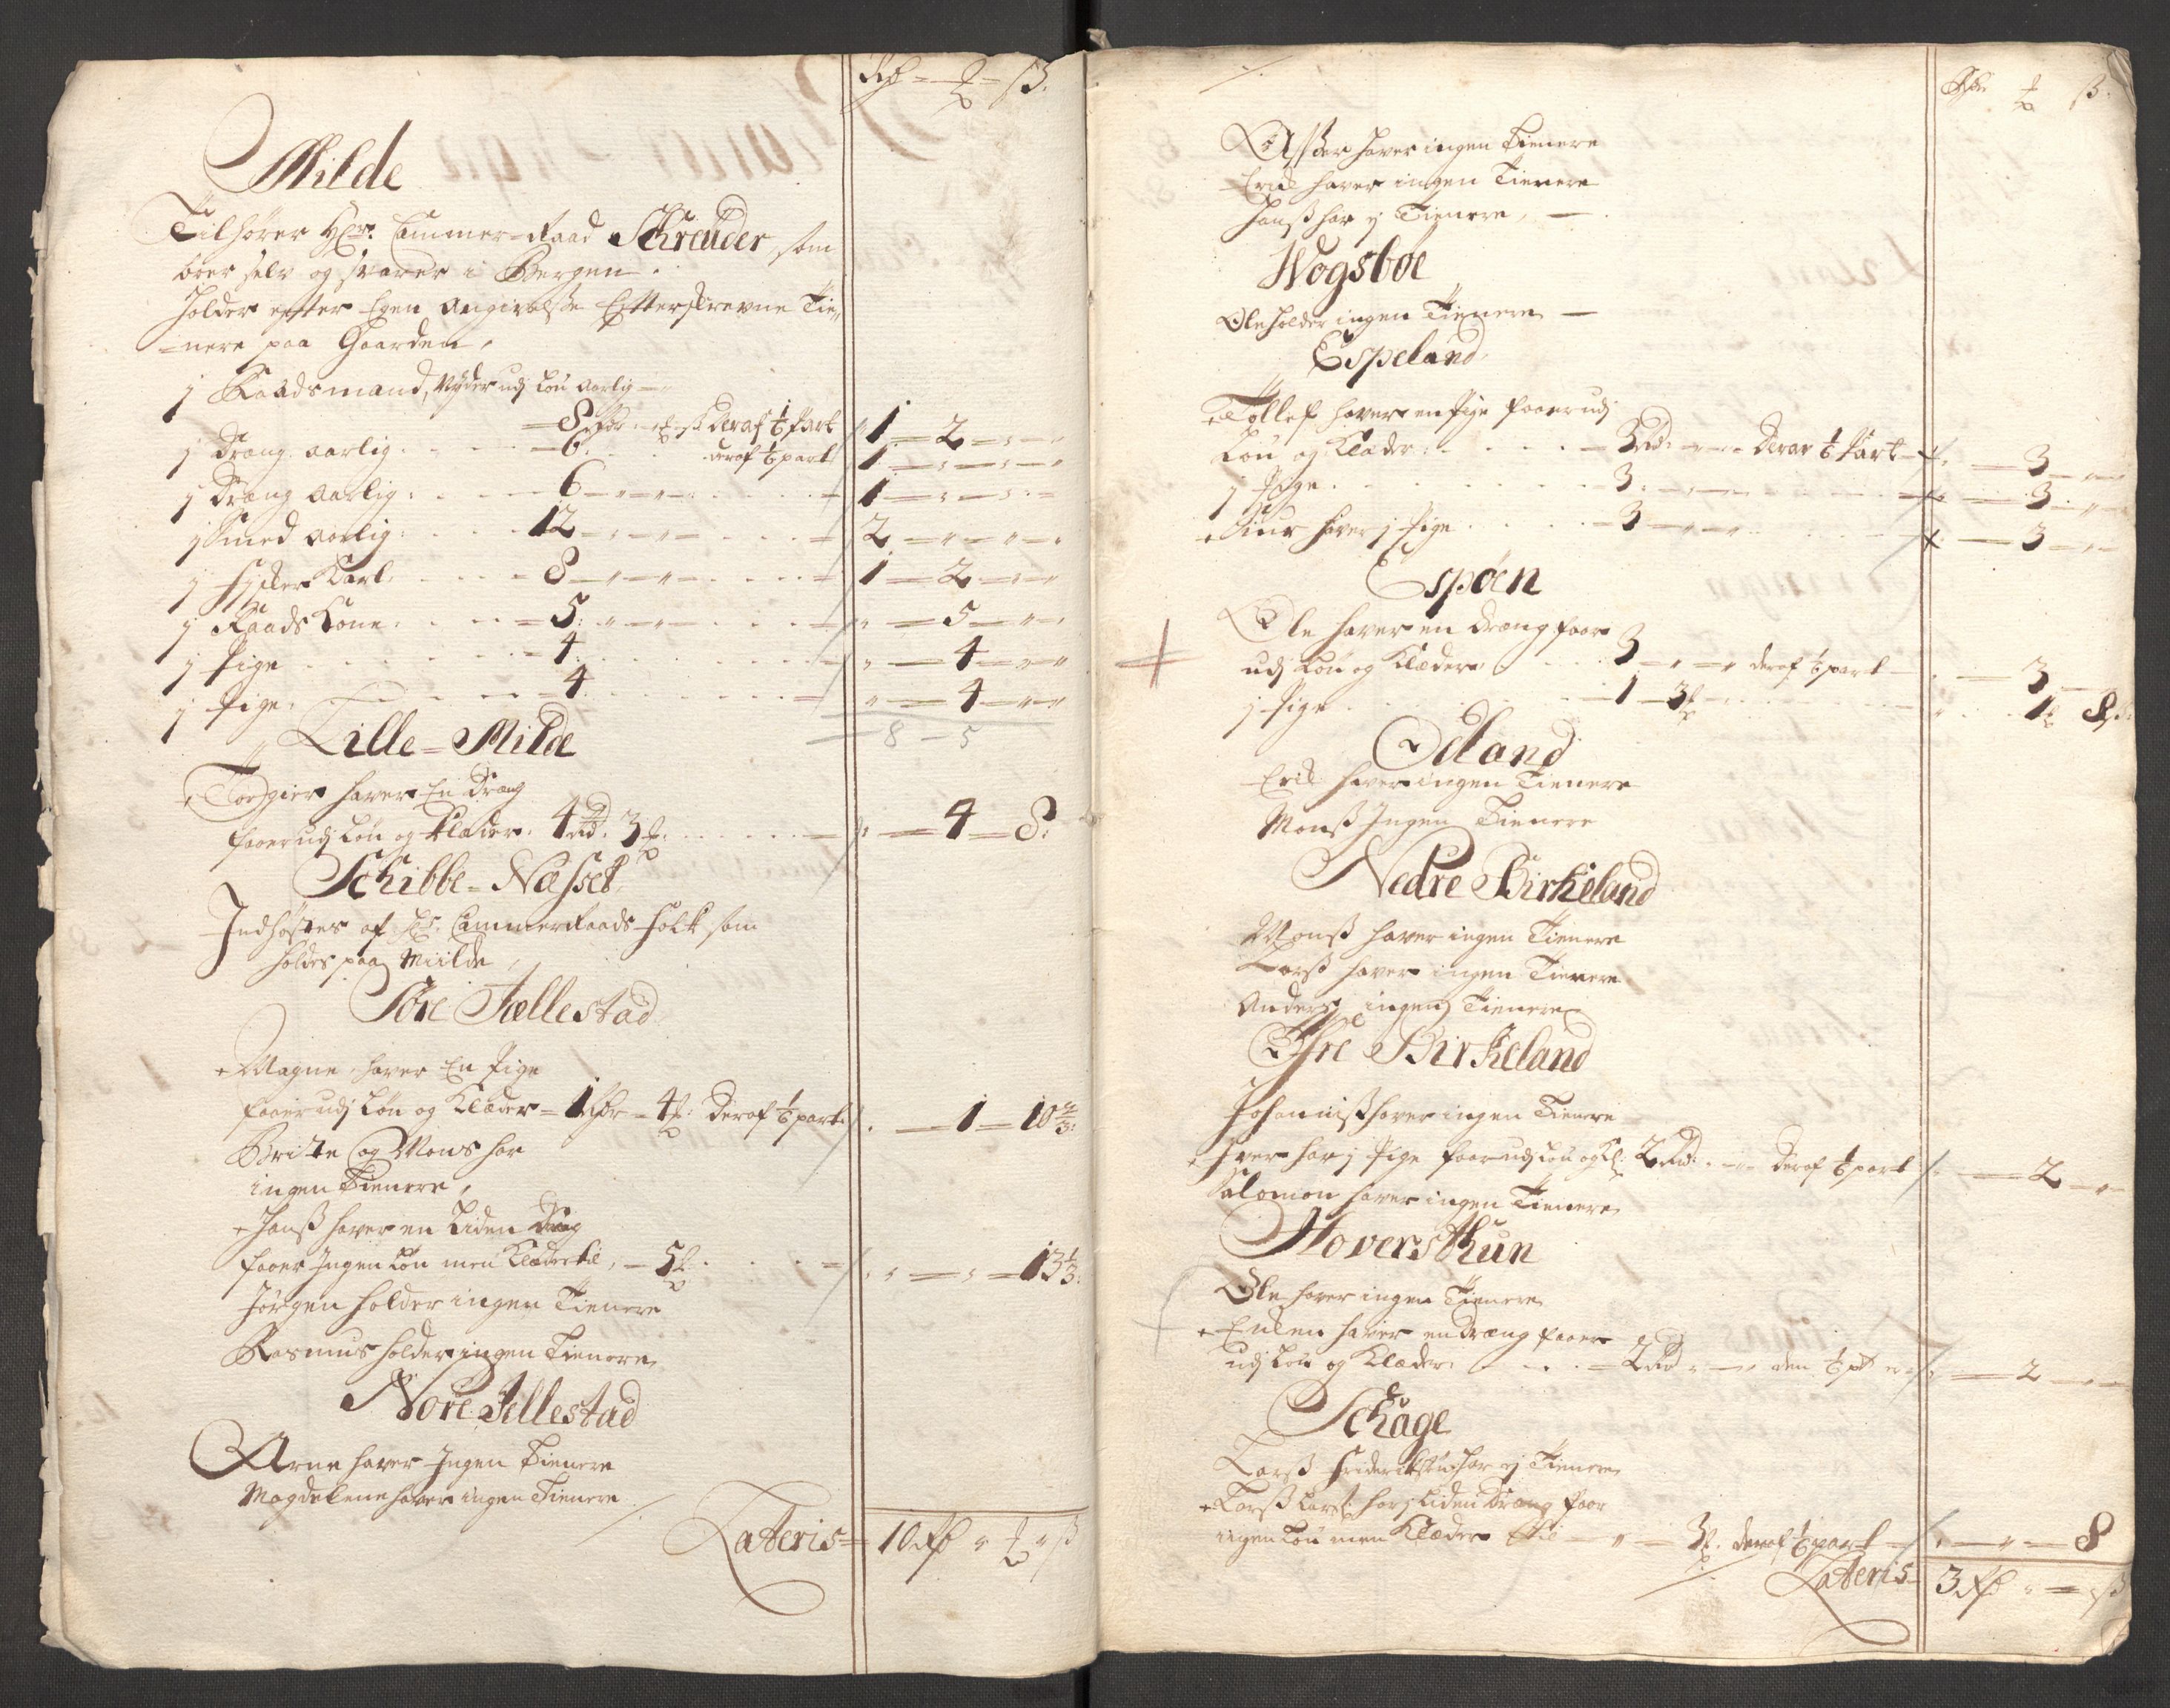 Rdr = ℔ = ß.
Milde
Tilhører Hr. Cammer=Raad Schreuder, som
boer selv og svarer i Bergen.
Holder efter Egen Angivelse Efterskrevne Tie,,
=nere paa Gaarden,
j Raadsmand, Nyder udj Løn aarlig —
8 Rdr deraf 1/6 Part 1 = 2 = „
j Dreng aarlig 6 deraf 1/6 part 1 = „ = „
j Dreng Aarlig 6 = „ = „ 1 = „ = „
j Smed Aarlig 12 = „ = „ 2 = „ = „
j Fisker Karl 8 = „ = „ 1 = 2 = „
j Raads Kone 5 = „ = „ „ = 5 = „
j Pige 4 „ = 4 = „
j Pige 4 „ = 4 = „
8 - 5
Lille=Milde
Torgier haver En Dreng
faaer udj Løn og Klæder. 4 Rd. 3 „ = 4 = 8.
Schibbe=Næsset
Indhøstes af Hr. CammerRaads Folk som
holdes paa Miilde,
Søre Jællestad
+ Magne haver En Pige
faaer udj Løn og Klæder = 1 Rdr = 4: Deraf 1/6 part „ = 1 = 10 2/3:
Brite og Mons har
ingen Tienere,
+ Hanß haver en Liden Dreng
faaer Ingen Løn men Klæder til, = 5 „ = „ = 13 1/3:
Jørgen holder ingen Tienere
Rasmus holder ingen Tienere
Nore Jellestad
Arne haver Ingen Tienere
Magdelene haver ingen Tienere
Lateris = 10 Rdr „ ℔ „ ß
Rdr ℔ ß.
Asser haver ingen Tienere
Erik haver ingen Tienere
Hanß har ej Tienere,
Wogsbøe
Ole holder ingen Tienere —
Espeland
+ Tollef haver en Pige faaer udj
Løn og Klæder 3 Rd. = „ = Deraf 1/6 Part = 3 = „
j Pige 3 = „ = „ = 3 = „
+ Siur haver j Pige 3 = „ = „ = 3 = „
Espøen
Ole haver en Dreng faaer
udj Løn og Klæder 3 = „ = „ deraf 1/6 part = 3 =
j Pige 1 = 3 1 8 ß.
Øeland
Erik haver ingen Tienere
Monß Ingen Tienere
Nedre Birkeland
Monß haver ingen Tienere
Larß haver ingen Tienere
Anders ingen Tienere
Øfre Birkeland
Johanniß haver ingen Tienere
+ Iver har j Pige faar udj Løn og Kl: 2 Rd. = „ = Deraf 1/6 part = 2 = „
Salomon haver ingen Tienere
Hoversthun
Ole haver ingen Tienere
+ Enken haver en Dreng faaer
udj Løn og Klæder 2 Rd = „ = „ den 1/6 pt er = 2 = „
Schage
Larß Frideriksen har ej Tienere
+ Larß Larß: har j Liden Dreng faar
ingen Løn men Klæder til = „ = 3. deraf 1/6 part = „ = 8
Lateris = 3 Rdr „ = „ ß